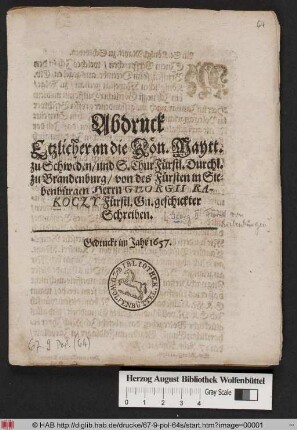 64
Abdruck
Etzlicher an die Kön. Maytt.
zu Schweden/ und S. Chur Fürstl. Durchl.
zu Brandenburg/ von des Fürsten in Sie-
benbürgen Herrn GEORGII RA-
KOCZY Fürstl. Gn. geschickter
Schreiben.
Gedruckt im Jahr 1657.
67. 9 Pol. (64)
Herzog August Bibliothek Wolfenbüttel
Gray Scale
0 1 2 3 4 5 6 7 8 9 10
© HAB http://diglib.hab.de/drucke/67-9-pol-64s/start.htm?image=00001